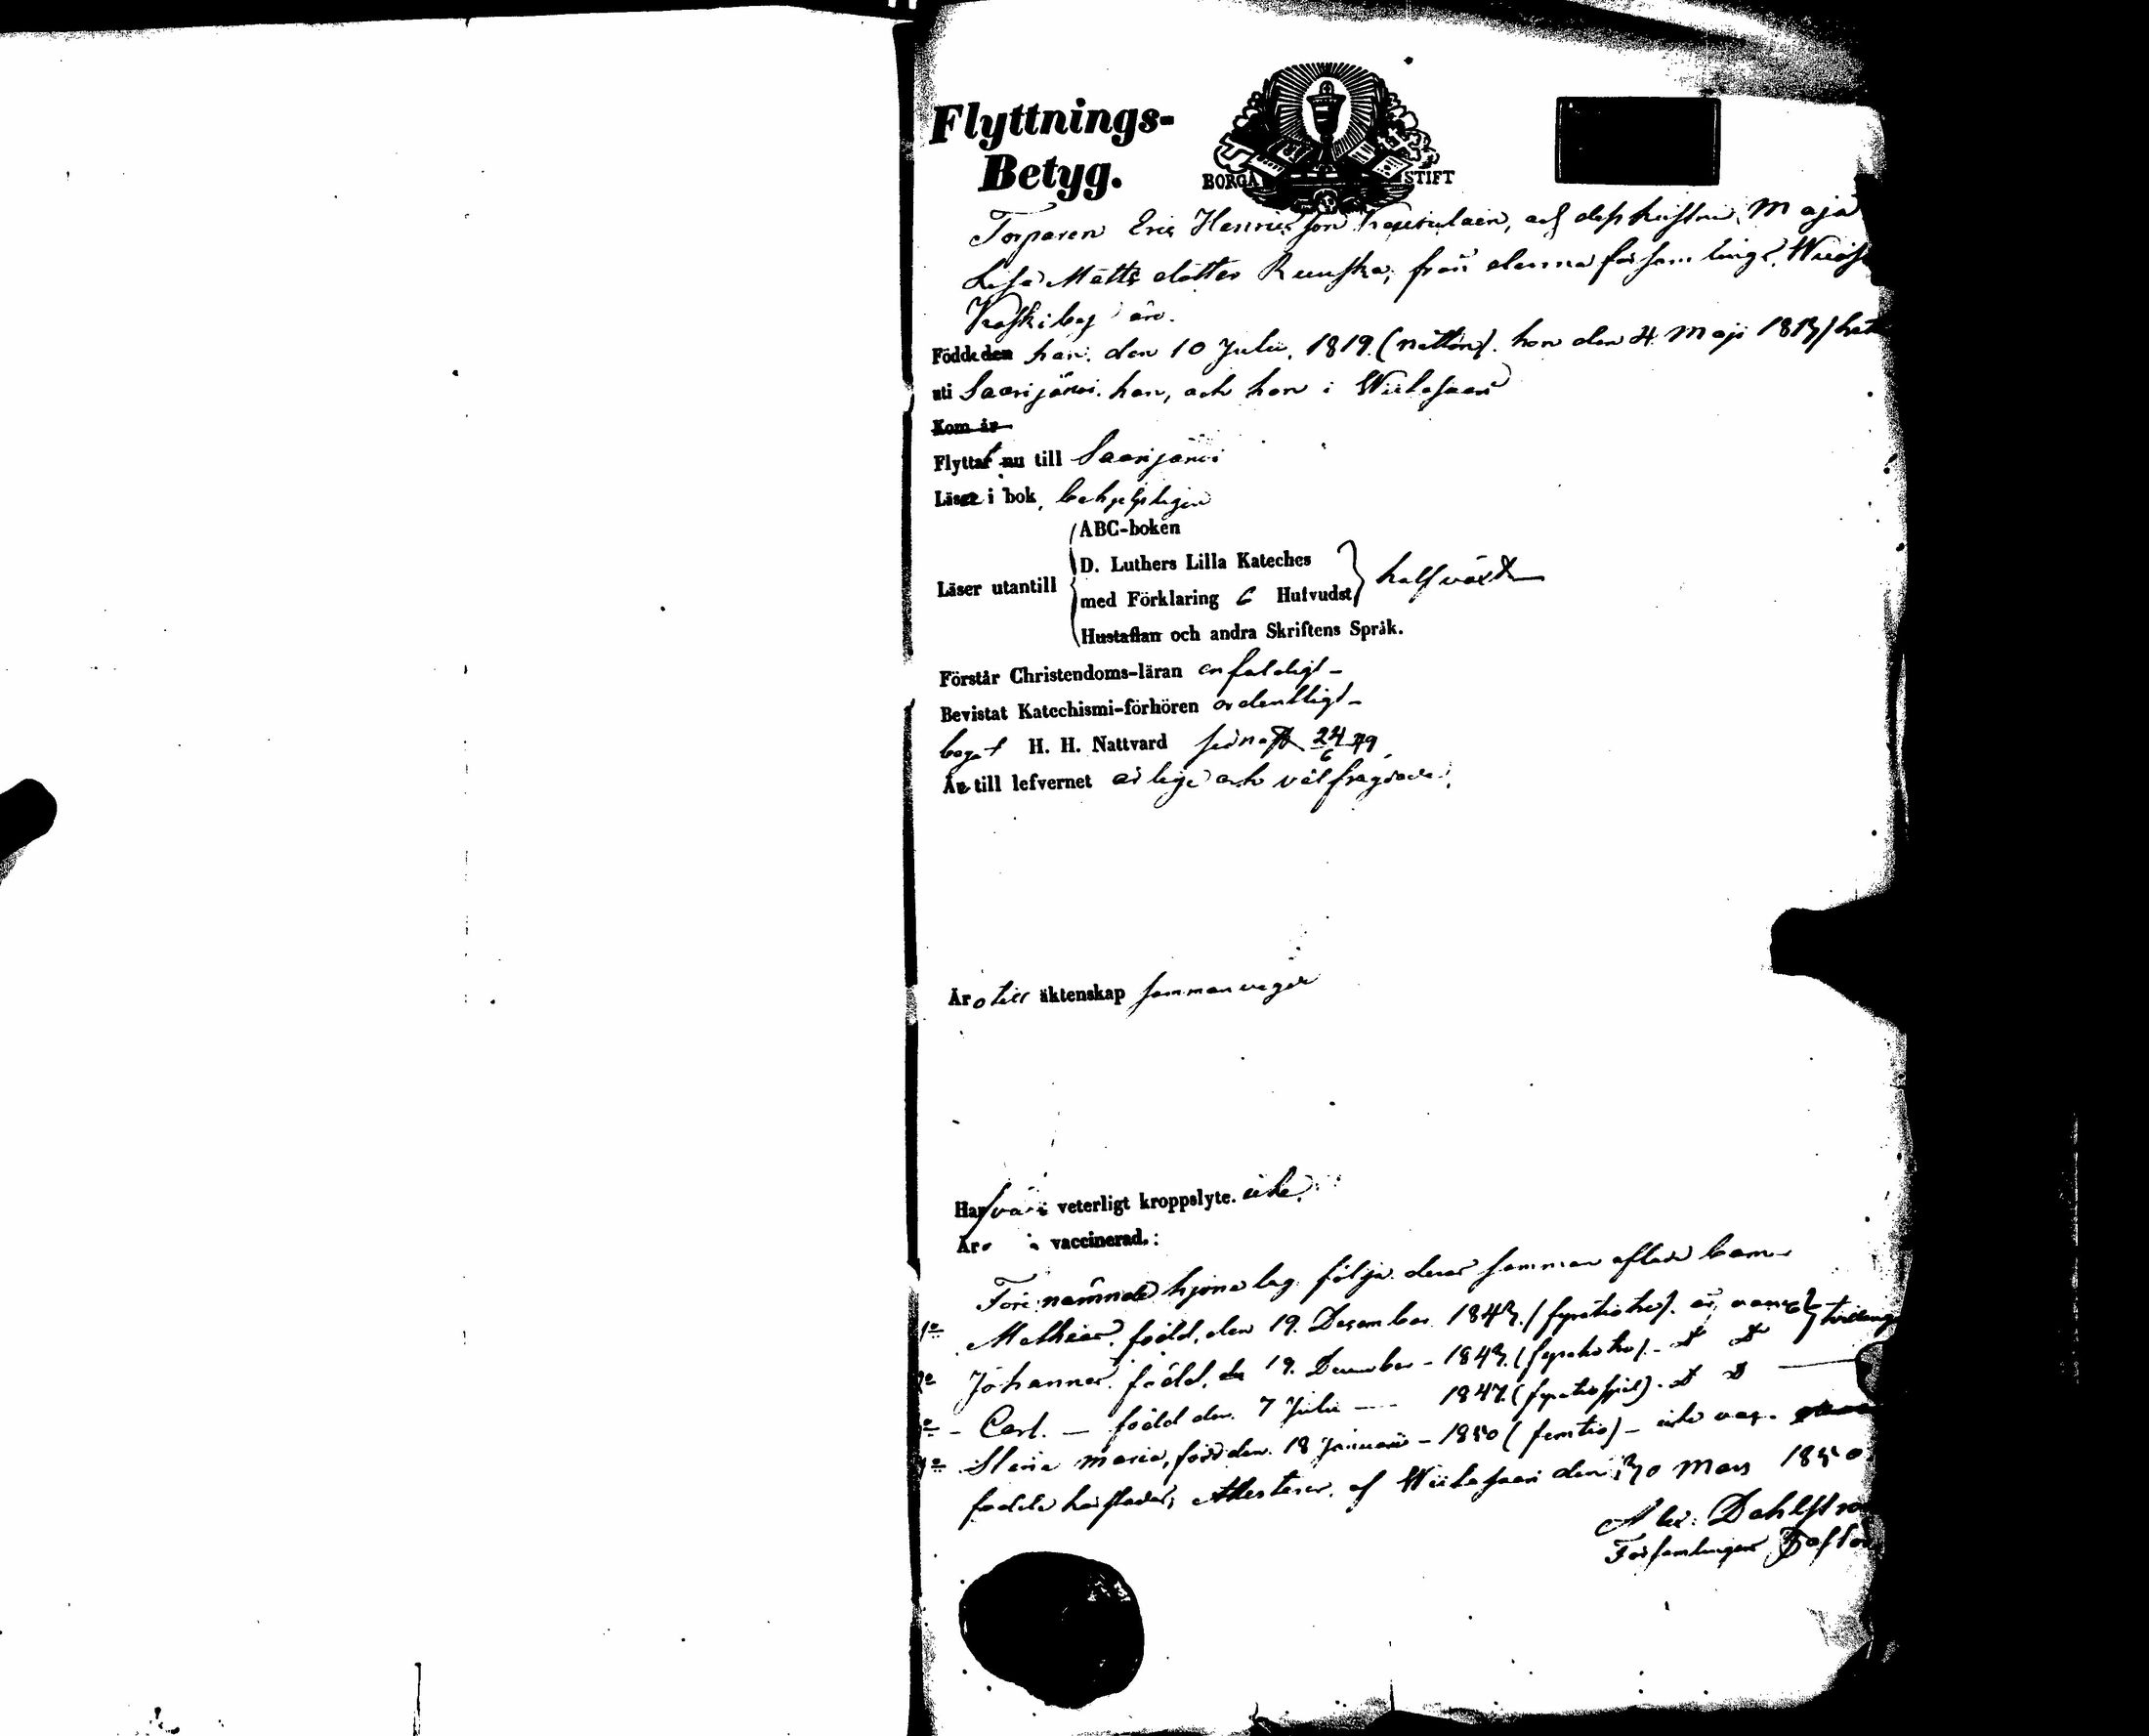 Flyttnings-
Betyg.
BORGÅ STIFT
Torparen Eric Henricsson och dess hustru Maja
Lisa Matts dotter Ruuska, från denna församling,
by äro.
Födde den han, den 10 Julii, 1819 (nitton). hon den 4 Maji
uti Saarijärvi han, och hon i Wiitasaari
Kom år
Flyttat nu till Saarijärvi
Läser i bok, behjelpligen
ABC-boken
D. Luthers Lilla Kateches
Läser utantill
med Förklaring 6 Hufvudst
Hustaflan och andra Skriftens Språk.
Förstår Christendoms-läran enfaldigt -
Bevistat Katechismi-förhören ordentligt -
begåt H. H. Nattvard sednast 24/6 49
Är till lefvernet ärlige och välfrägdade.
Äro till äktenskap sammanvigde
Har veterligt kroppslyte. icke.
Äro vaccinerad.:
Förenämnde hjonelag följa deras samman aflade barn
1o Mathias, född, den 19. December 1843. (fyratiotre). är vacc.
2o Johannes, född, den 19. December - 1843. (fyratiotre) - Do Do
- Carl. — född den 7 Julii — 1847. (fyratiosju). Do Do
Maria, född den 18 Januarii - 1850 (femtio) - icke vac.
födde härstädes, Attesterar, af Wiitasaari den 30 Mars 1850.
Alex. Dahlström
Församlingens Pastor